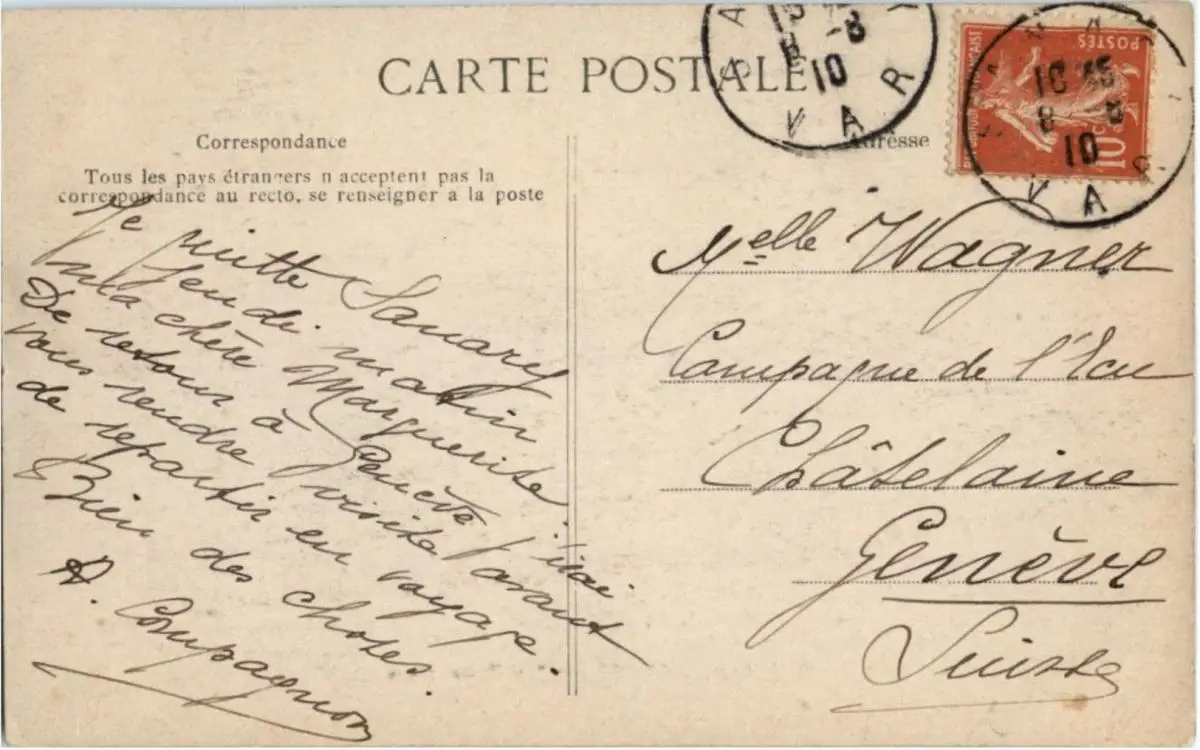 CARTE POSTALE
Correspondance
Tous les pays étrangers n acceptent pas la
correspondance au recto, se renseigner a la poste
Adresse
Je quitte Sanary
Jeudi matin
ma chère Marguerite.
De retour à Genève j'irai
vous rendre visite avant
de repartir en voyage.
Bien des choses.
A. Compagnon
Melle Wagner
Campagne de l'Ecu
Châtelaine
Genève
Suisse
POSTES
10c
10 45
8 -8
10
VAR
-8
10
VAR